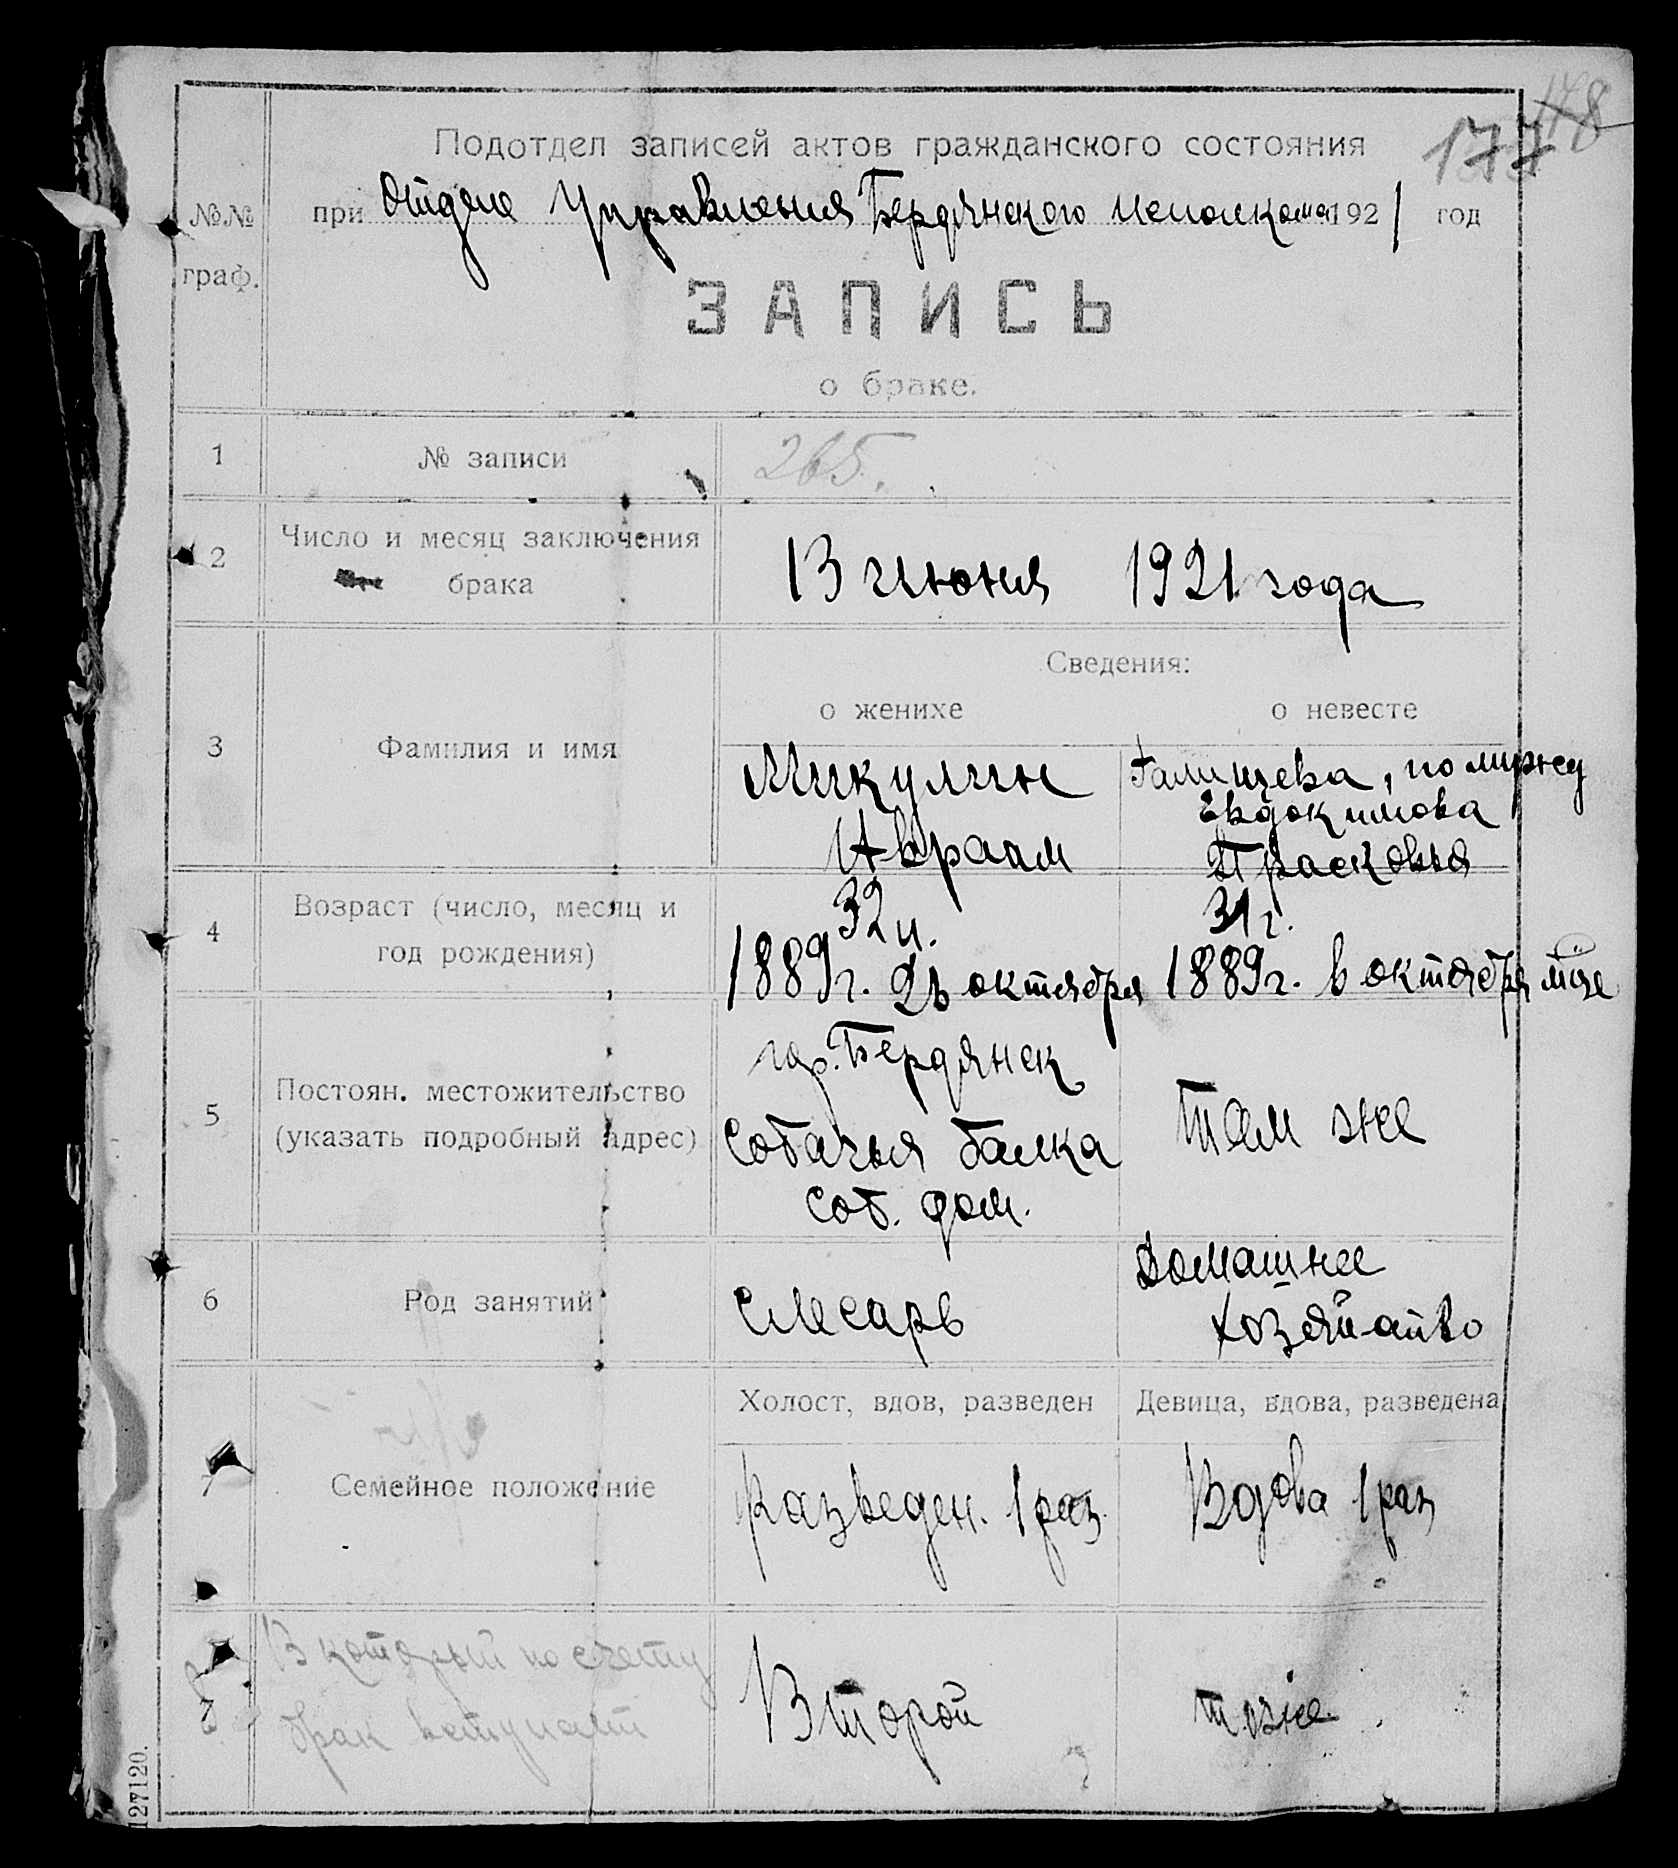 178
177
Подотдел записей актов гражданского состояния
№№ при Отделе Управления Бердянского исполкома 1921 год
граф.
ЗАПИСЬ
о браке.
1 № записи 265.
2 Число и месяц заключения брака 13 июня 1921 года
Сведения:
о женихе о невесте
3 Фамилия и имя
Микулин Галищева, по мужу
Евдокимова
Авраам Прасковья
4 Возраст (число, месяц и год рождения)
32 л. 31 г.
1889 г. октября 1889 г. в октябре м-це
5 Постоян. местожительство (указать подробный адрес)
гор. Бердянск
Собачья балка Там же
соб. дом.
6 Род занятий
Слесарь Домашнее
хозяйство
Холост, вдов, разведен Девица, вдова, разведена
7 Семейное положение
разведен. 1 раз. Вдова 1 раз
В который по счету
брак вступает
Второй тоже
127120.